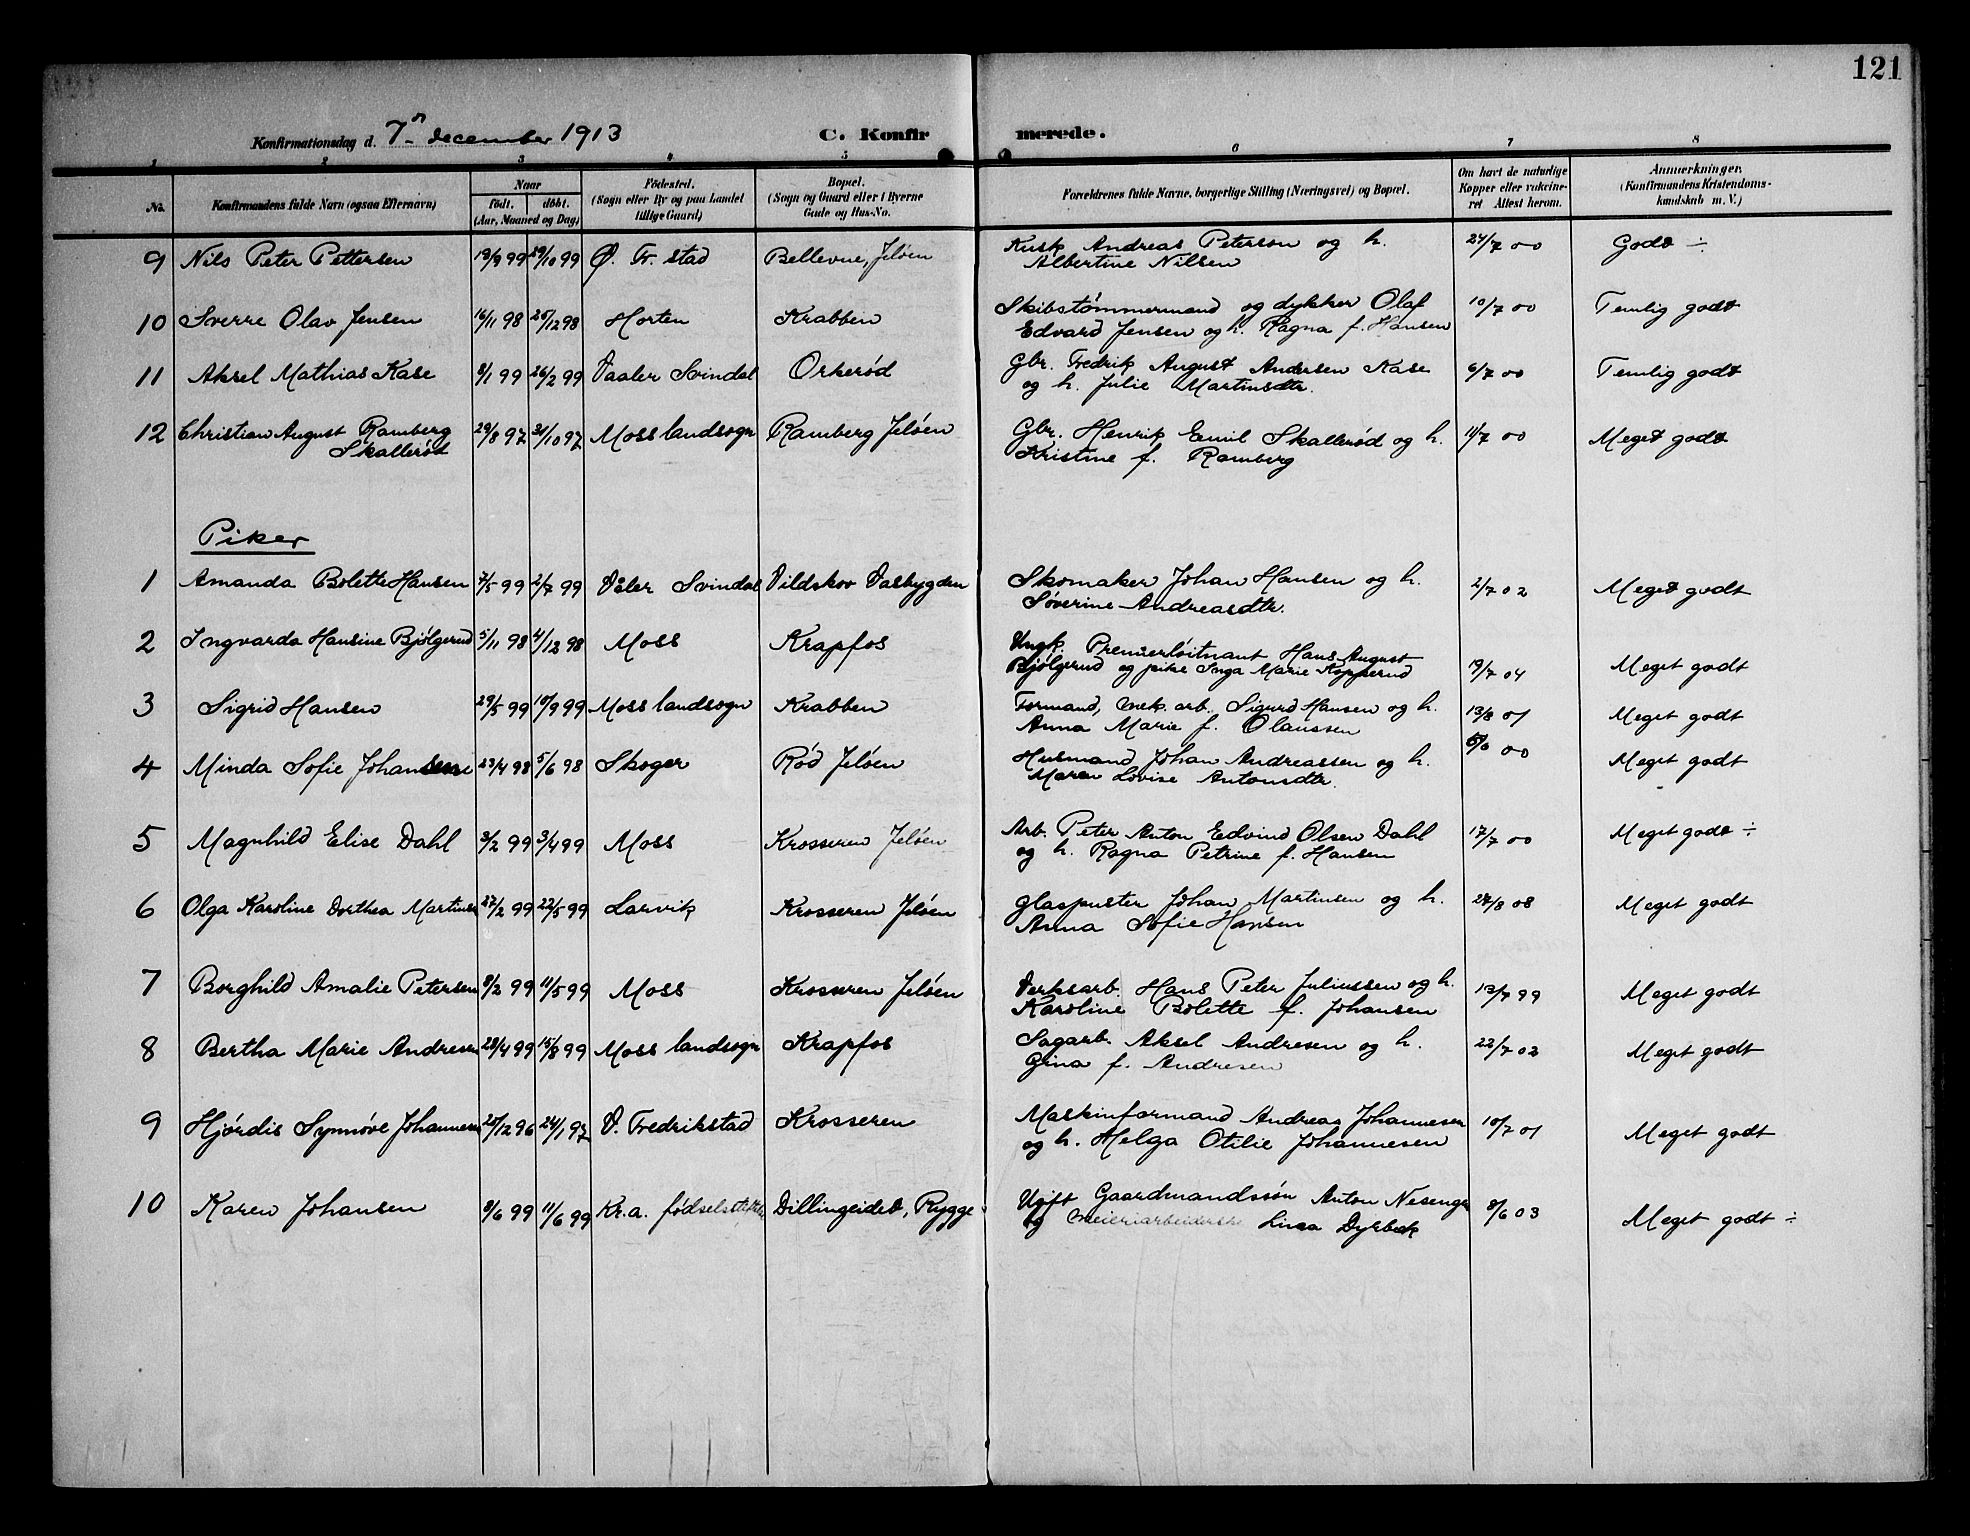 121
Konfirmationsdag d. 7de december 1913 C. Konfirmerede.
1 2 3 4 5 6 7 8
No. Konfirmandens fulde Navn (ogsaa Efternavn) Naar født. døbt. (Aar, Maaned og Dag) Fødested. (Sogn eller By og paa Landet tillige Gaard) Bopæl. (Sogn og Gaard eller i Byerne Gade og Hus-No. Forældrenes fulde Navne, borgerlige Stilling (Næringsvei) og Bopæl. Om havt de naturlige Kopper eller vaccineret Attest herom. Anmerkninger. (Konfirmandens Kristendomskundskab m. V.)
9 Nils Peter Pettersen 13/9 99 29/10 99 Ø. Fr. stad Bellevue, Jeløen Kusk Andreas Peterson og h. 24/7 00 Godt ÷
Albertine Nilsen
10 Sverre Olav Jensen 16/11 98 26/12 98 Horten Krabben Skibstømmermand og dykker Olaf 10/7 00 Temlig godt
Edvard Jensen og h. Ragna f. Hansen
11 Aksel Mathias Kase 8/1 99 26/2 99 Vaaler Svindal Orkerød Gbr. Fredrik August Andersen Kase 6/7 00 Temlig godt
og h. Julie Martinsdtr.
12 Christian August Ramberg 29/8 97 31/10 97 Moss landsogn Ramberg Jeløen Gbr. Henrik Emil Skallerød og h. 11/7 00 Meget godt
Skallerød Kristine f. Ramberg
Piker
1 Amanda Bolette Hansen 7/5 99 2/7 99 Våler Svindal Vildskov Vasbygden Skomaker Johan Hansen og h. 2/7 02 Meget godt
Søverine Andreasdtr.
2 Ingvarda Hansine Bjølgerud 5/11 98 4/12 98 Moss Krapfos Ungk. Premierløitnant Hans August
Bjølgerud og pike Inga Marie Kopperud 19/7 04 Meget godt
3 Sigrid Hansen 29/5 99 10/9 99 Moss landsogn Krabben Formand, mek. arb. Sigurd Hansen og h. 13/8 01 Meget godt
Anna Marie f. Olaussen
4 Minda Sofie Johansen 23/4 98 5/6 98 Skoger Rød Jeløen Husmand Johan Andreassen og h. 00 Meget godt
Maren Lovise Antonsdtr.
5 Magnhild Elise Dahl 3/2 99 3/4 99 Moss Krosseren Jeløen Arb. Peter Anton Edvind Olsen Dahl 17/7 00 Meget godt ÷
og h. Ragna Petrine f. Hansen
6 Olga Karoline Dorthea Martinsen 27/2 99 22/5 99 Larvik Krosseren Jeløen Glaspuster Johan Martinsen og h. 27/8 08 Meget godt
Anna Sofie Hansen
7 Borghild Amalie Petersen 8/2 99 11/5 99 Moss Krosseren Jeløen Verksarb. Hans Peter Juliussen og h. 13/7 99 Meget godt
Karoline Bolette f. Johansen
8 Bertha Marie Andresen 28/4 99 15/8 99 Moss landsogn Krapfos Sagarb. Aksel Andresen og h. 22/7 02 Meget godt
Gina f. Andresen
9 Hjørdis Synnøve Johannesen 25/12 96 24/1 97 V. Fredrikstad Krosseren Maskinformand Andreas Johannesen 10/7 01 Meget godt
og h. Helga Otilie Johannesen
10 Karen Johansen 8/6 99 11/6 99 Kr.a. fødselsstiftelse Dillingeidet, Rygge Ugift Gaardmandssøn Anton Nesengr 8/6 03 Meget godt ÷
og meieriarbeiderske Lina Dyrbæk